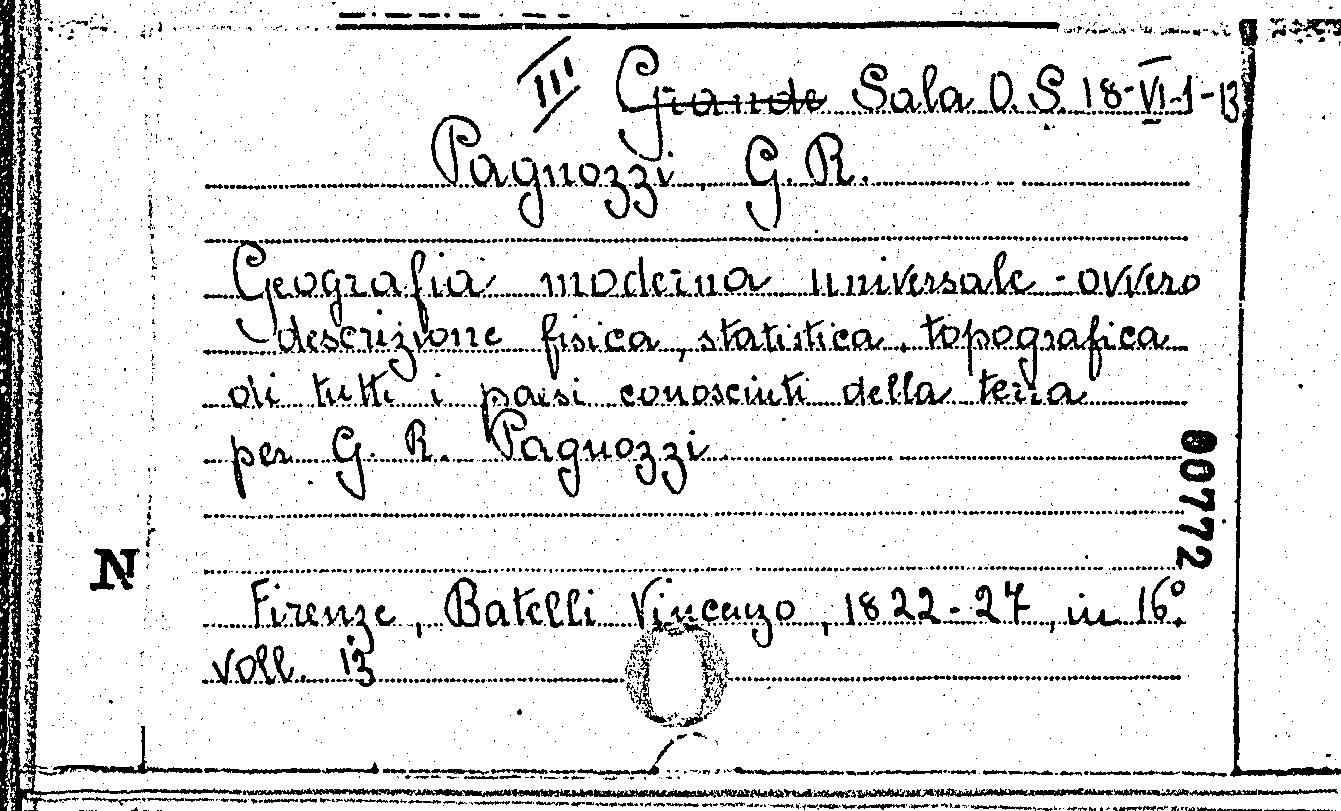 III Grande Sala O.S. 18-VI-1-13
Pagnozzi G.R.
Geografia moderna universale - ovvero
descrizione fisica, statistica, topografica
di tutti i paesi conosciuti della terra
per G. R. Pagnozzi.
00772
N
Firenze, Batelli Vincenzo, 1822-27, in 16°.
voll. 13